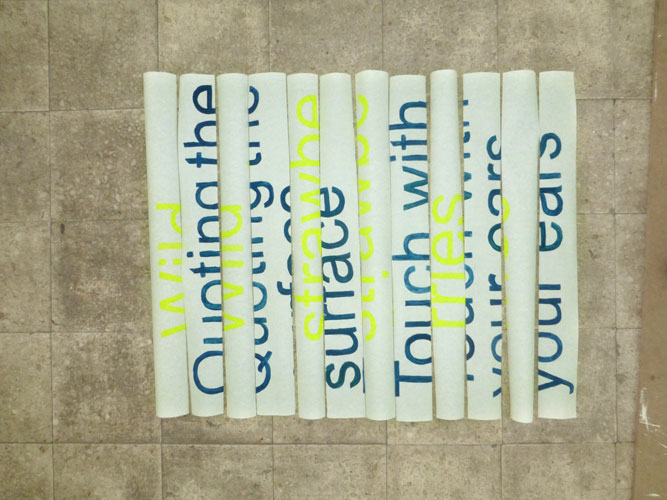 Wild
Quoting the
Wild
Quoting the
surface
strawbe
surface
strawbe
Touch with
rries
Touch with
your ears
your ears